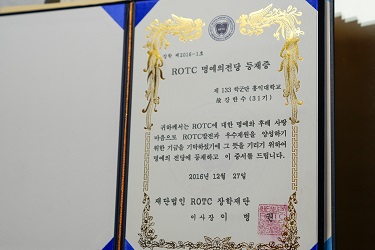 영환 제2016-1호
ROTC 명예의전당 등재증
제 133 학군단 홍익대학교
故 강한수(31기)
귀하께서는 ROTC에 대한 명예와 후배 사랑
마음으로 ROTC발전과 우수재원을 양성하기
위한 기금을 기탁하셨기에 그 뜻을 기리기 위하여
명예의 전당에 등재하고 이 증서를 드립니다.
2016년 12월 27일
재단법인 ROTC 장학재단
이사장 이 병 권